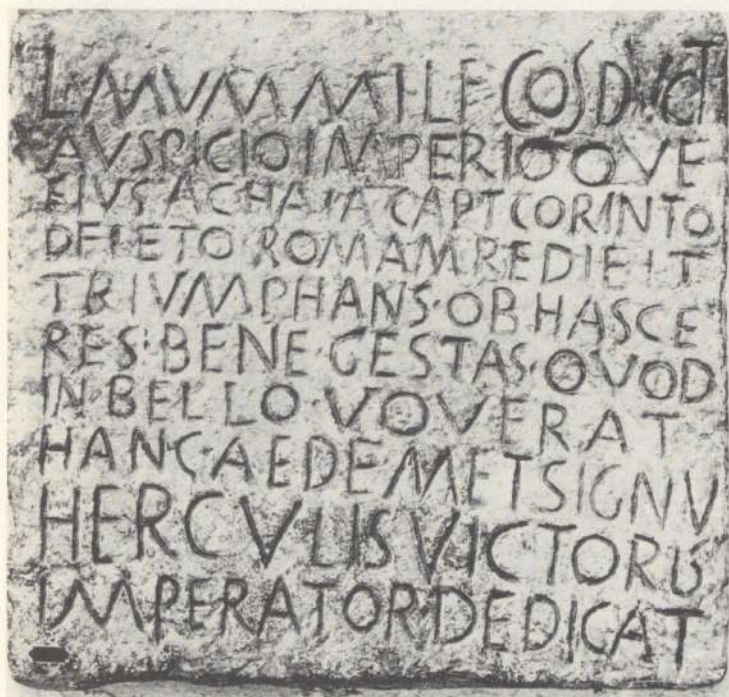 L·MVMMI·L·F·COS·DVCT
AVSPICIO·IMPERIOQVE
EIVS·ACHAIA·CAPT·CORINTO
DELETO·ROMAM·REDIEIT
TRIVMPHANS·OB·HASCE
RES·BENE·GESTAS·QVOD
IN·BELLO·VOVERAT
HANC·AEDEM·ET·SIGNV
HERCVLIS·VICTORIS
IMPERATOR·DEDICAT